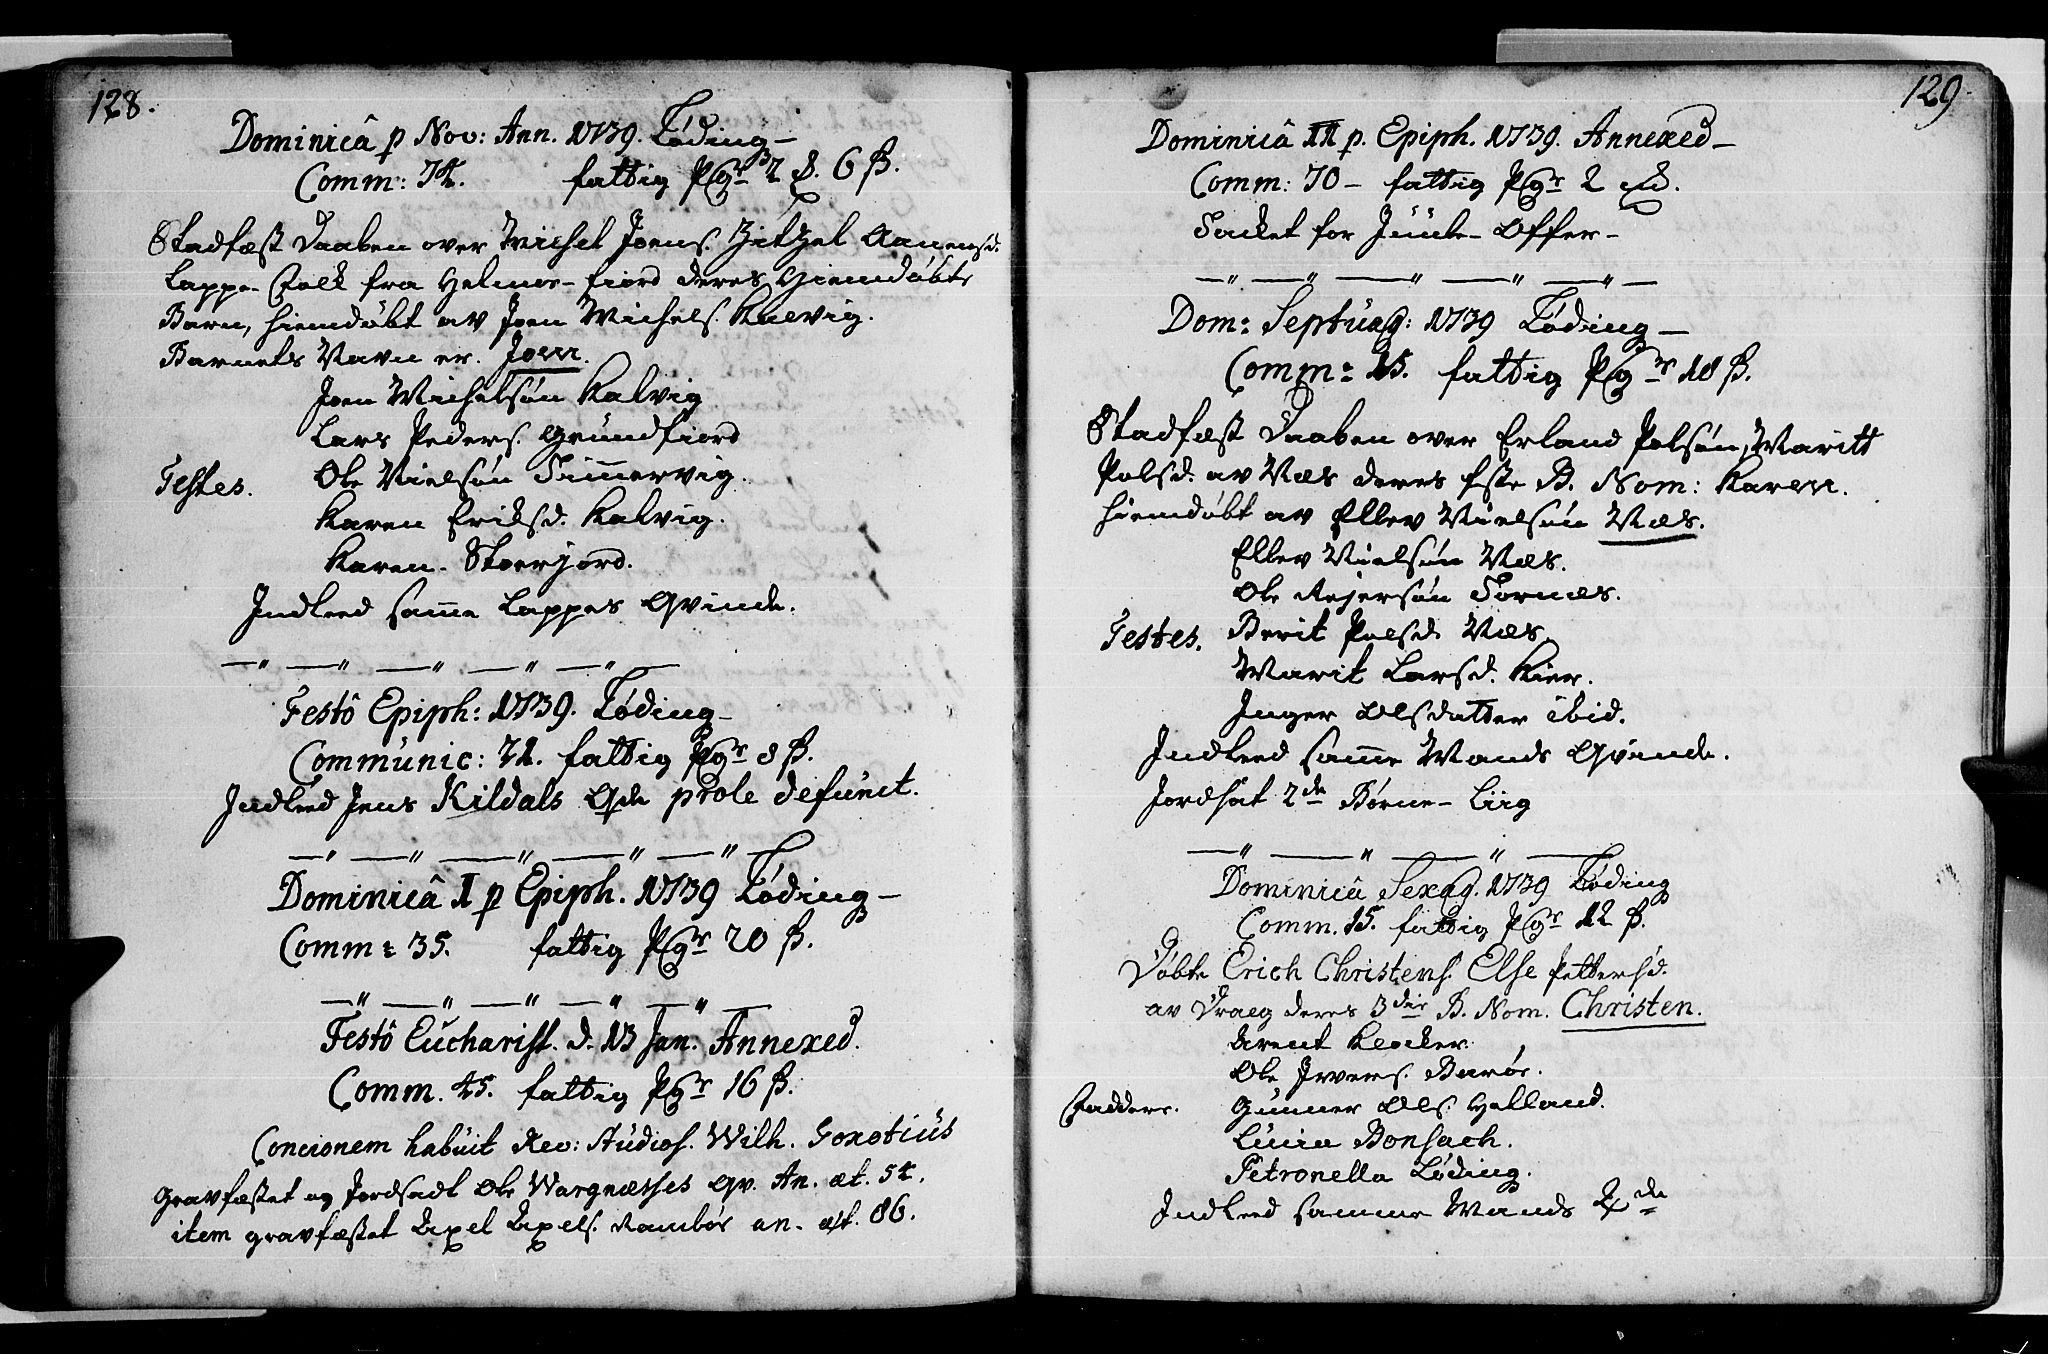 128.
Dominicâ p Nov: Ann. 1739. Løding-
Comm: 74. fattig Pgr 2 6 ß.
Stadfæst Daaben over Michel Joens. Zitzel Aanensd.
Lappe-Folk fra Helmer-fiord deres hiemdøbte
Barn, hiemdøbt av Joen Michels. Kalvig.
Barnets Navn er. Joen.
Joen Michelsøn Kalvig
Lars Peders. Grundfiord
Testes. Ole Nielsøn Timmervig.
Karen Eriksd. Kalvig.
Karen Storrjord.
Indleed samme Lappes Qvinde.
Festô Epiph: 1739. Løding-
Communic: 72. fattig Pgr 8 ß.
Indleed Jens Kildals Qde prole defunct.
Dominicâ I p Epiph. 1739 Løding-
Comm: 35. fattig Pgr 20 ß.
Festô Eucharist. d. 13 Jan. Annexed.
Comm. 45. fattig Pgr 16 ß.
Concionem habuit Rev: Studios. Wilh. Goxotius
Gravfæstet og Jordsadt Ole Wargnæsses Qv. An. æt. 54.
item gravfæstet Axel Axels. Rambør an. æt. 86.
129.
Dominicâ II p. Epiph. 1739. Annexed-
Comm: 70- fattig Pgr 2
Tacket for Juule-Offer-
Dom: Septuag: 1739 Løding-
Comm: 15. fattig Pgr 18 ß.
Stadfæst Daaben over Erland Polsøn, Maritt
Polsd. av Næs deres fste B. Nom: Karen.
hiemdøbt av Ellev Nielsøn Næs.
Ellev Nielsøn Næs.
Ole Rejersøn Tornæs.
Testes. Berit Polsd. Næs.
Marit Larsd. Kier.
Inger Olsdatter ibid.
Indleed samme Mands Qvinde.
Jordsat 2de Børne-Liig
Dominicâ Sexag. 1739 Løding
Comm. 15. fattig Pgr 12 ß.
Døbte Erich Christens. Else Pettersd.
av Draeg deres 3die B. Nom. Christen.
Arent Klocker.
Ole Ivers. Barøe.
Faddere. Gunner Ols. Helland.
Lucia Bonsach.
Petronella Løding.
Indleed samme Mands Qde